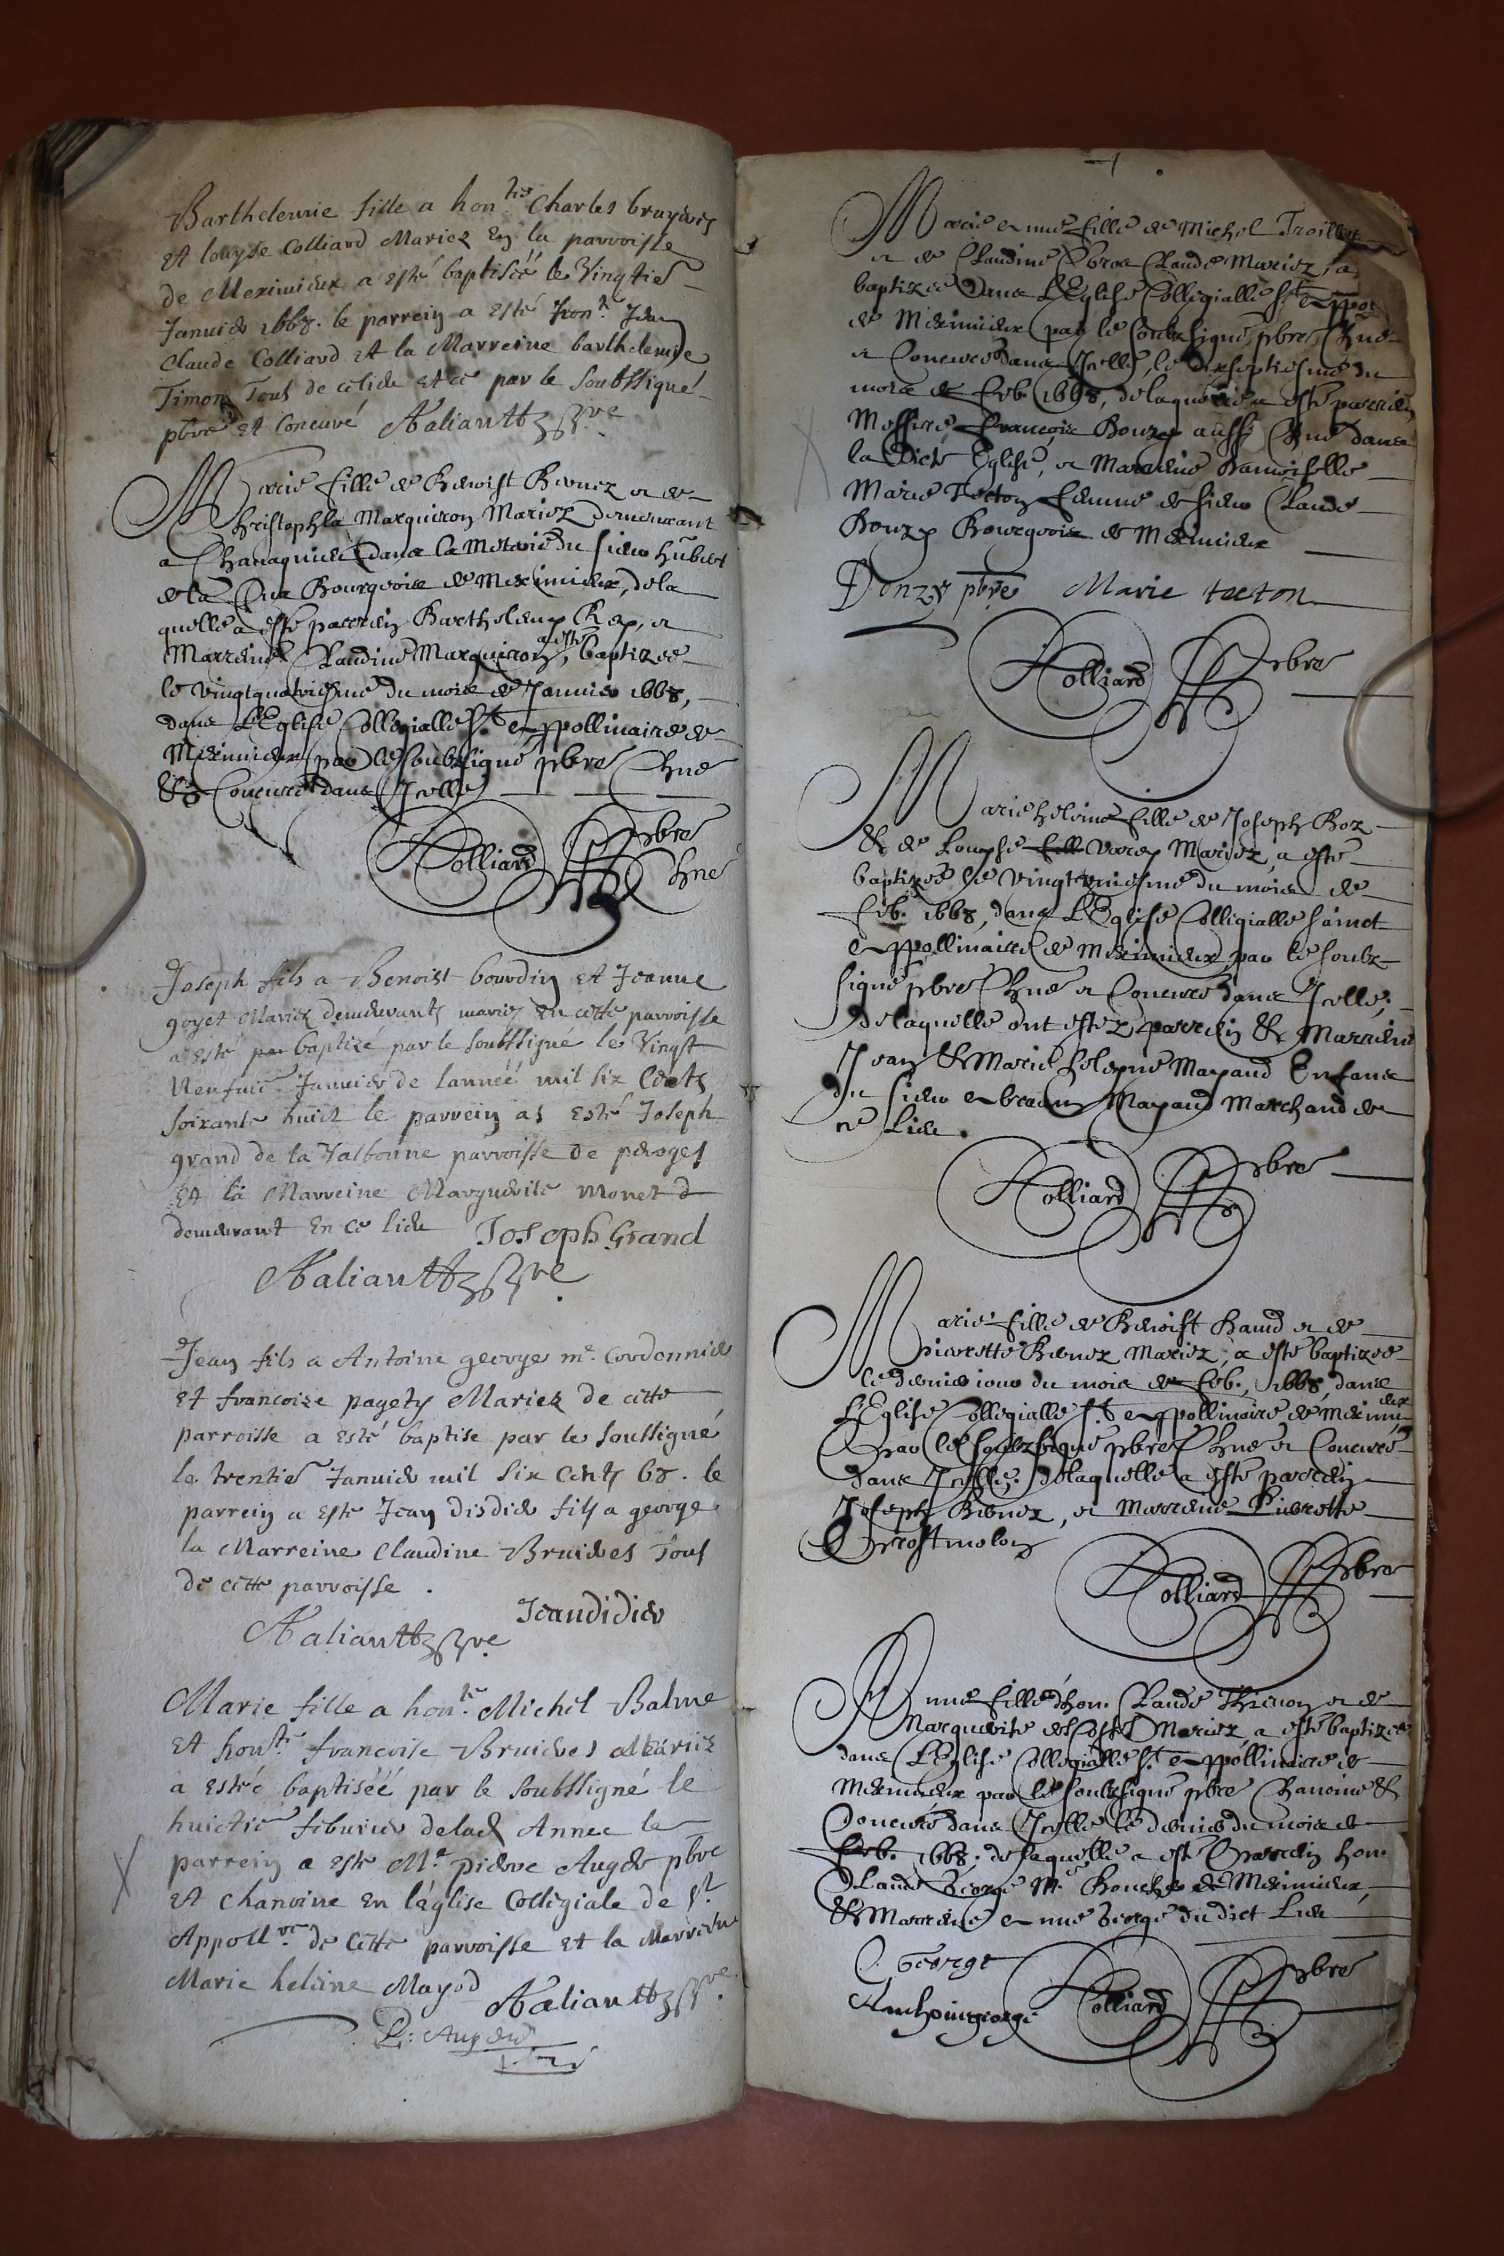 Barthelemie fille a hon.ble Charles bruyeres
Et louyse Colliard Mariez En la parroisse
de Meximieux a esté baptiséé le Vingties
Januier 1668. le parrein a Esté hon.r Jean
Claude Colliard Et la Marreine barthelemie
Timon Tous de ce lieu et ce par le soubssigné
pbre Et Concuré Aaliantt pbre
Marie fille de Benoist Bernez et de
Christophla Marquiron Mariez demeurant
a Chanagnieu dans la Metarie du sieur hubert
de la Bourgeois de Meximieux, de la
quelle a esté parrein Barthelemy Rey, et
Marreine Claudine Marquiron, a esté baptizee
le vingtquatriesme du mois de Januier 1668,
dans L'Eglise Collegialle St. Appollinaire de
Meximieux par le soubsigné pbre Chne
& Concuré dans Icelle
Colliard pbre
chne
Joseph fils a Benoist bourdin Et Jeanne
goyet Mariez demeurants mariez En cette parroisse
a esté par baptizé par le soubssigné le Vingt
Neufuie Januier de lannéé mil six Cents
soixante huict le parrein as Esté Joseph
grand de la Valbonne parroisse de peroges
Et la Marreine Marguerite monet d
demeurant En ce lieu Joseph Grand
Aaliantt pbre
Jean fils a Antoine george me. Cordonnier
Et francoise pagety Mariez de cette
parroisse a Esté baptise par le soussigné
le trentie Januier mil six Cents 68. le
parrein a este Jean disdier fils a george
la Marreine Claudine Bruieres Tous
de cette parroisse.
Jeandidier
Aaliantt pbre
Marie fille a hon.ble Michel Balme
Et hon.ble francoise Bruieres Mariez
a estéé baptiséé par le soubssigné le
huictie feburier de lad Annee le
parrein a este Me pierre Auger pbre
Et Chanoine En l'église Collegiale de St
Appoll.re de cette parroisse Et la Marreine
Marie heleine Mayod Aaliantt pbre
P: Auger
Marie Anne fille de Michel Troillet
et de Claudine Claude Mariez, a
baptizee dans L'Eglise Collegialle St. Appol
de Meximieux par le soubsigné pbre Chne
et Concuré dans Icelle, le dixseptiesme du
mois de feb. 1668, de laquelle a esté parrein
Messire François Donzy aussi Chne dans
la dicte Eglise, et Marreine damoiselle
Marie Tecton femme de sieur Claude
Donzy Bourgeois de Meximieux
Donzy pbre Marie tecton
Colliard pbre
Marie heleine fille de Joseph Boz
& de Louyse fille Mariez, a esté
baptizee le vingt uniesme du mois de
feb. 1668, dans L'Eglise Collegialle sainct
Appollinaire de Meximieux par le soub
signé pbre Chne et Concuré dans Icelle;
de laquelle ont estez parrein & Marreine
Jean & Marie helegne Mayaud Enfans
du sieur Mayaud Marchand de
ce Lieu.
Colliard pbre
Marie fille de Benoist Baud et de
pierrette Bernez Mariez, a esté baptizee
le dernier iour du mois de feb., 1668, dans
L'Eglise Collegialle St. Appollinaire de Meximieux
par le soubzsigné pbre Chne et Concuré
dans Icelle: de laquelle a esté parrein
Joseph Bernez, et Marreine Pierrette
Prostmolon
Colliard pbre
Anne fille d'hon. Claude Thienon et de
Marguerite Mariez, a esté baptizee
dans L'Eglise Collegialle St. Appollinaire de
Meximieux par le soubsigné pbre Chanoine &
Concuré dans Icelle le dernier du mois de
feb. 1668. de laquelle a esté parrein hon.
Claude George Me. Boucher de Meximieux,
& Marreine Anne George du dict Lieu
C. George
Anthoinegeorge Colliard pbre